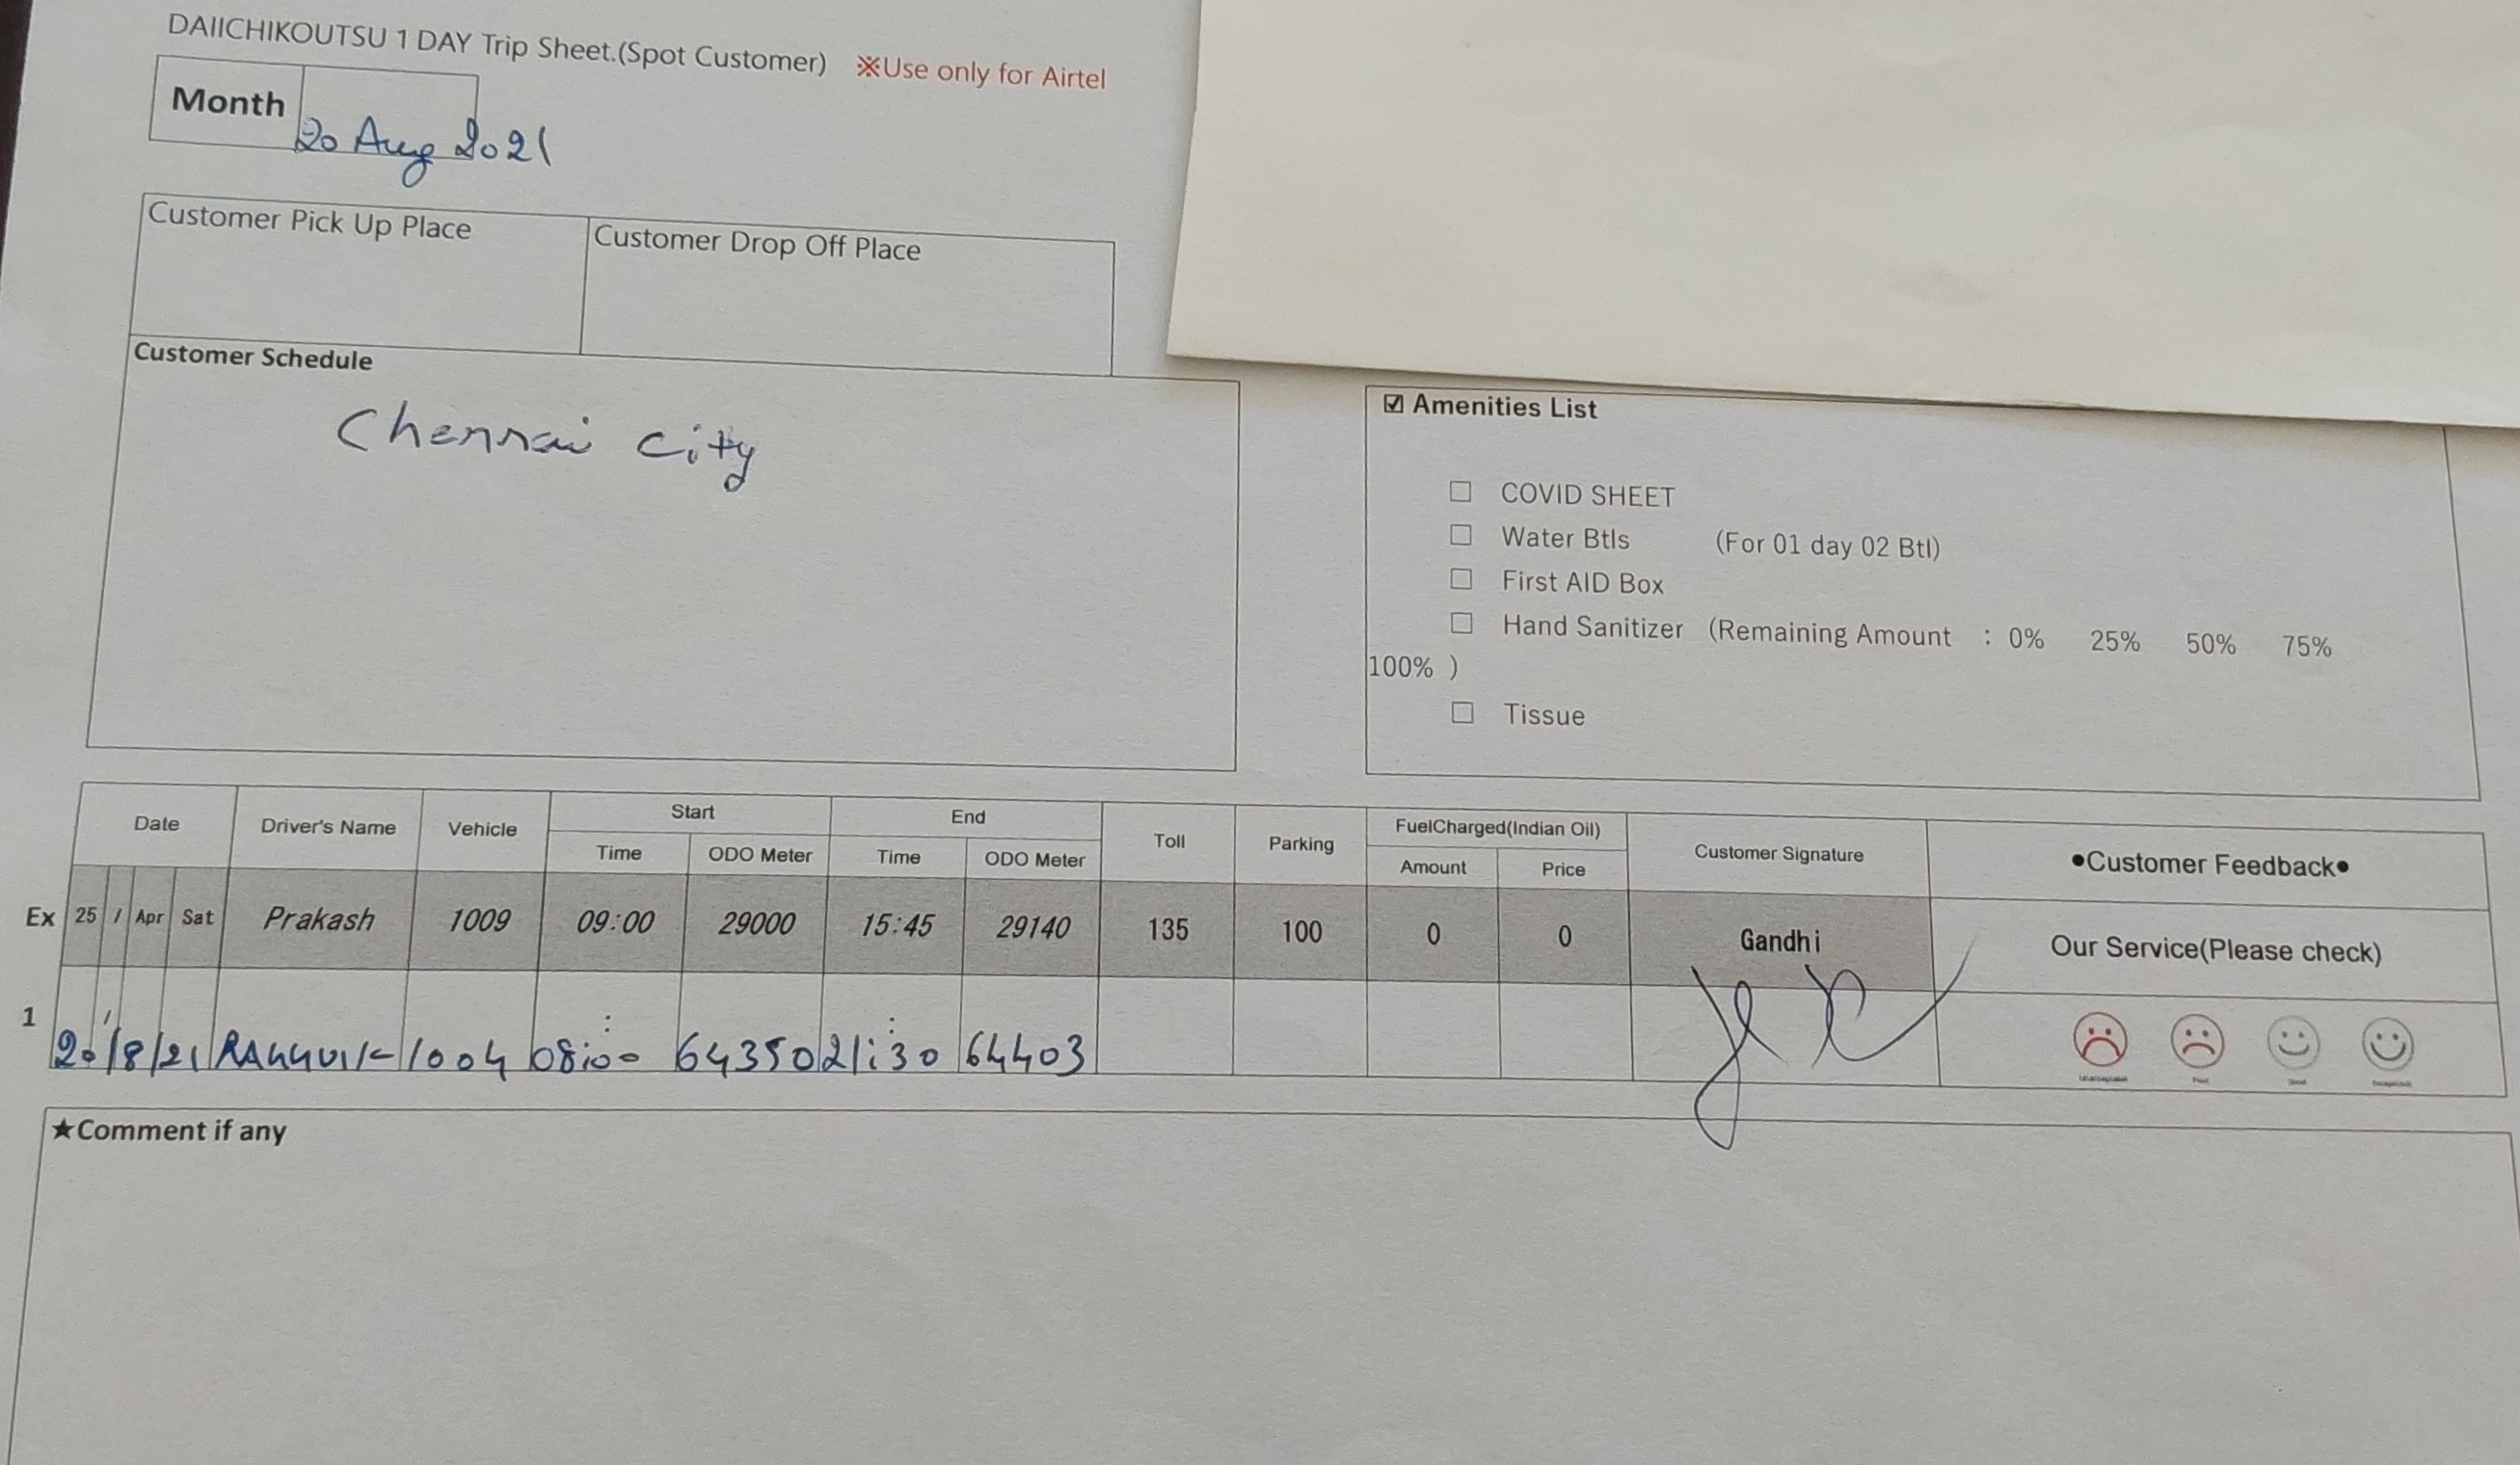 DAIICHIKOUTSU 1 DAY Trip Sheet.(Spot Customer) ※Use only for Airtel
Month 20 Aug 2021
Customer Pick Up Place Customer Drop Off Place
Customer Schedule
Chennai City
☑ Amenities List
☐ COVID SHEET
☐ Water Btls (For 01 day 02 Btl)
☐ First AID Box
☐ Hand Sanitizer (Remaining Amount : 0% 25% 50% 75%
100% )
☐ Tissue
Date Driver's Name Vehicle Start End Toll Parking FuelCharged(Indian Oil) Customer Signature ●Customer Feedback●
Time ODO Meter Time ODO Meter Amount Price
Ex 25 / Apr Sat Prakash 1009 09:00 29000 15:45 29140 135 100 0 0 Gandhi Our Service(Please check)
1 20/8/21 1004 08:00 64350 21:30 64403
★Comment if any